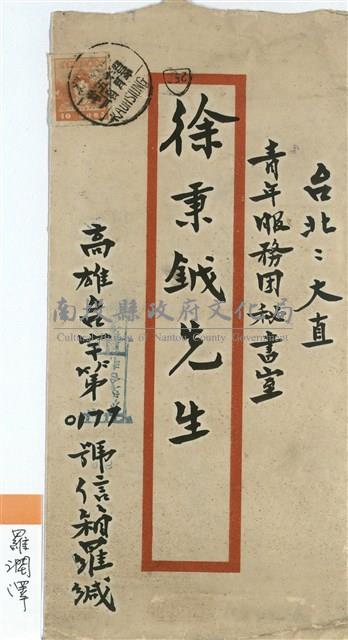 台北：大直
青年服務团秘書室
徐秉鉞先生
高雄左字第0177號信箱羅緘
羅潤澤
南投縣政府文化局
Cultural Bureau of Nantou County Government
KAOHSIUNG
25
10